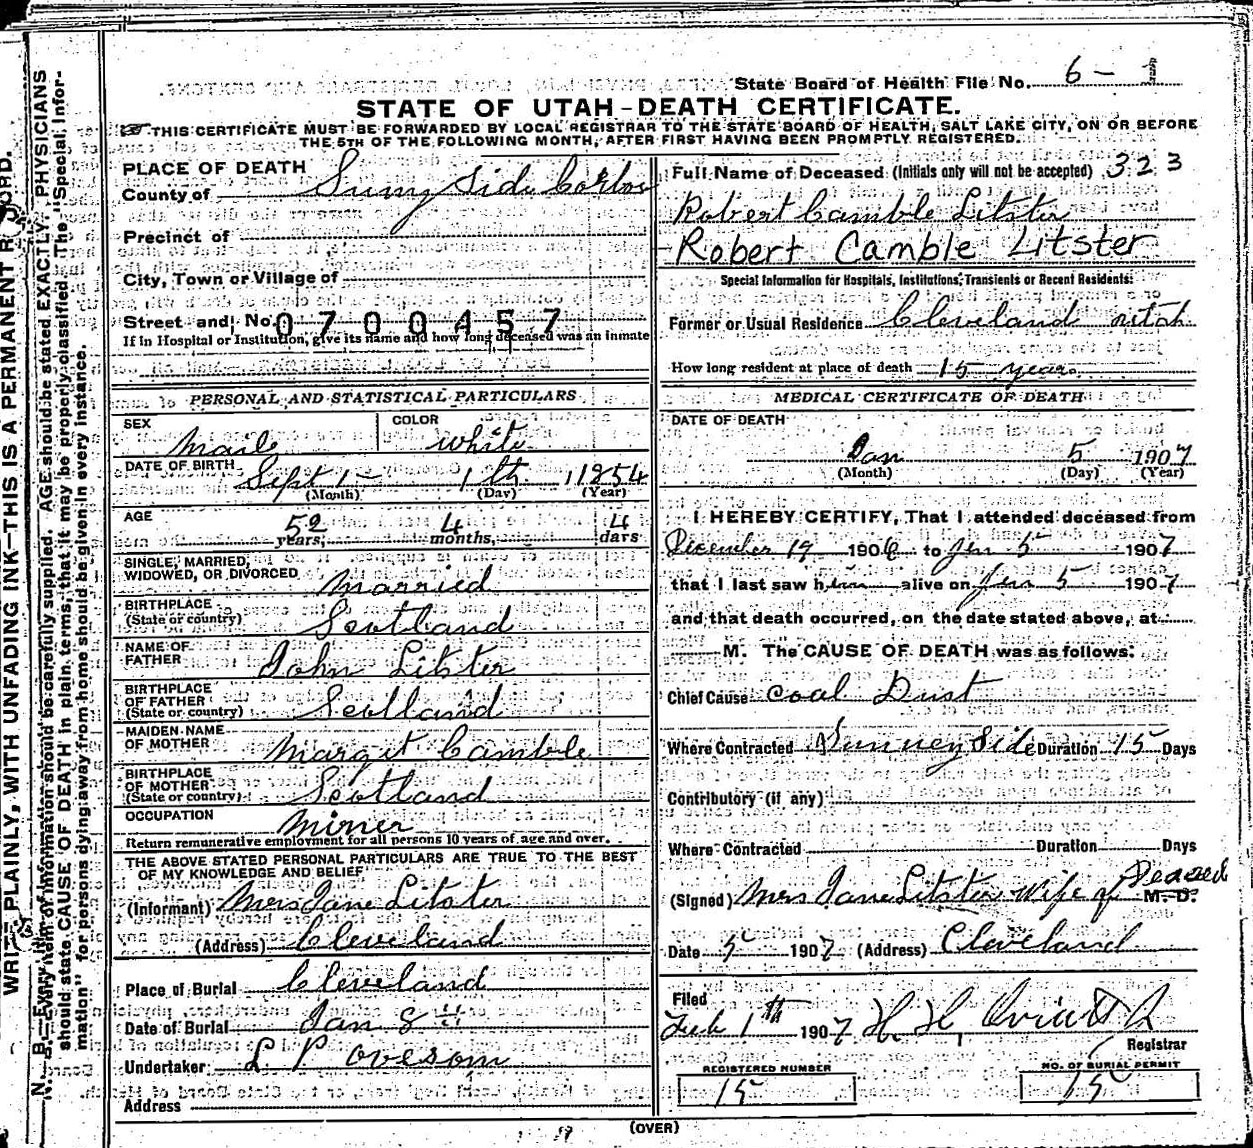 State Board of Health File No. 6 - 1
STATE OF UTAH-DEATH CERTIFICATE.
THIS CERTIFICATE MUST BE FORWARDED BY LOCAL REGISTRAR TO THE STATE BOARD OF HEALTH, SALT LAKE CITY, ON OR BEFORE
THE 5TH OF THE FOLLOWING MONTH, AFTER FIRST HAVING BEEN PROMPTLY REGISTERED.
PLACE OF DEATH
County of Sunny Side Carbon
Precinct of
City, Town or Village of
Street and No. 0700457
If in Hospital or Institution, give its name and how long deceased was an inmate
PERSONAL AND STATISTICAL PARTICULARS
SEX Male COLOR White
DATE OF BIRTH Sept 1 1th 1854
(Month) (Day) (Year)
AGE 52 4 4
years, months, days
SINGLE, MARRIED,
WIDOWED, OR DIVORCED Married
BIRTHPLACE
(State or country) Scotland
NAME OF
FATHER John Litster
BIRTHPLACE
OF FATHER
(State or country) Scotland
MAIDEN NAME
OF MOTHER Margit Camble
BIRTHPLACE
OF MOTHER
(State or country) Scotland
OCCUPATION Miner
Return remunerative employment for all persons 10 years of age and over.
THE ABOVE STATED PERSONAL PARTICULARS ARE TRUE TO THE BEST
OF MY KNOWLEDGE AND BELIEF
(Informant) Mrs Jane Litster
(Address) Cleveland
Place of Burial Cleveland
Date of Burial Jan 8
Undertaker L P Oveson
Address
Full Name of Deceased (Initials only will not be accepted) 323
Robert Camble Litster
Robert Camble Litster
Special Information for Hospitals, Institutions, Transients or Recent Residents:
Former or Usual Residence Cleveland utah
How long resident at place of death 15 years
MEDICAL CERTIFICATE OF DEATH
DATE OF DEATH
Jan 5 1907
(Month) (Day) (Year)
I HEREBY CERTIFY, That I attended deceased from
December 19 1906 to Jan 5 1907
that I last saw him alive on Jan 5 1907
and that death occurred, on the date stated above, at
M. The CAUSE OF DEATH was as follows:
Chief Cause Coal Dust
Where Contracted Sunney Side Duration 15 Days
Contributory (if any)
Where Contracted Duration Days
(Signed) Mrs Jane Litster Wife of Deased M. D.
Date 5 1907 (Address) Cleveland
Filed
Feb 1th 1907 H H Oviatt Jr
Registrar
REGISTERED NUMBER
15
NO. OF BURIAL PERMIT
15
(OVER)
WRITE PLAINLY, WITH UNFADING INK-THIS IS A PERMANENT RECORD.
N. B.-Every item of information should be carefully supplied. AGE should be stated EXACTLY. PHYSICIANS
should state CAUSE OF DEATH in plain terms, that it may be properly classified. The "Special Infor-
mation" for persons dying away from home should be given in every instance.